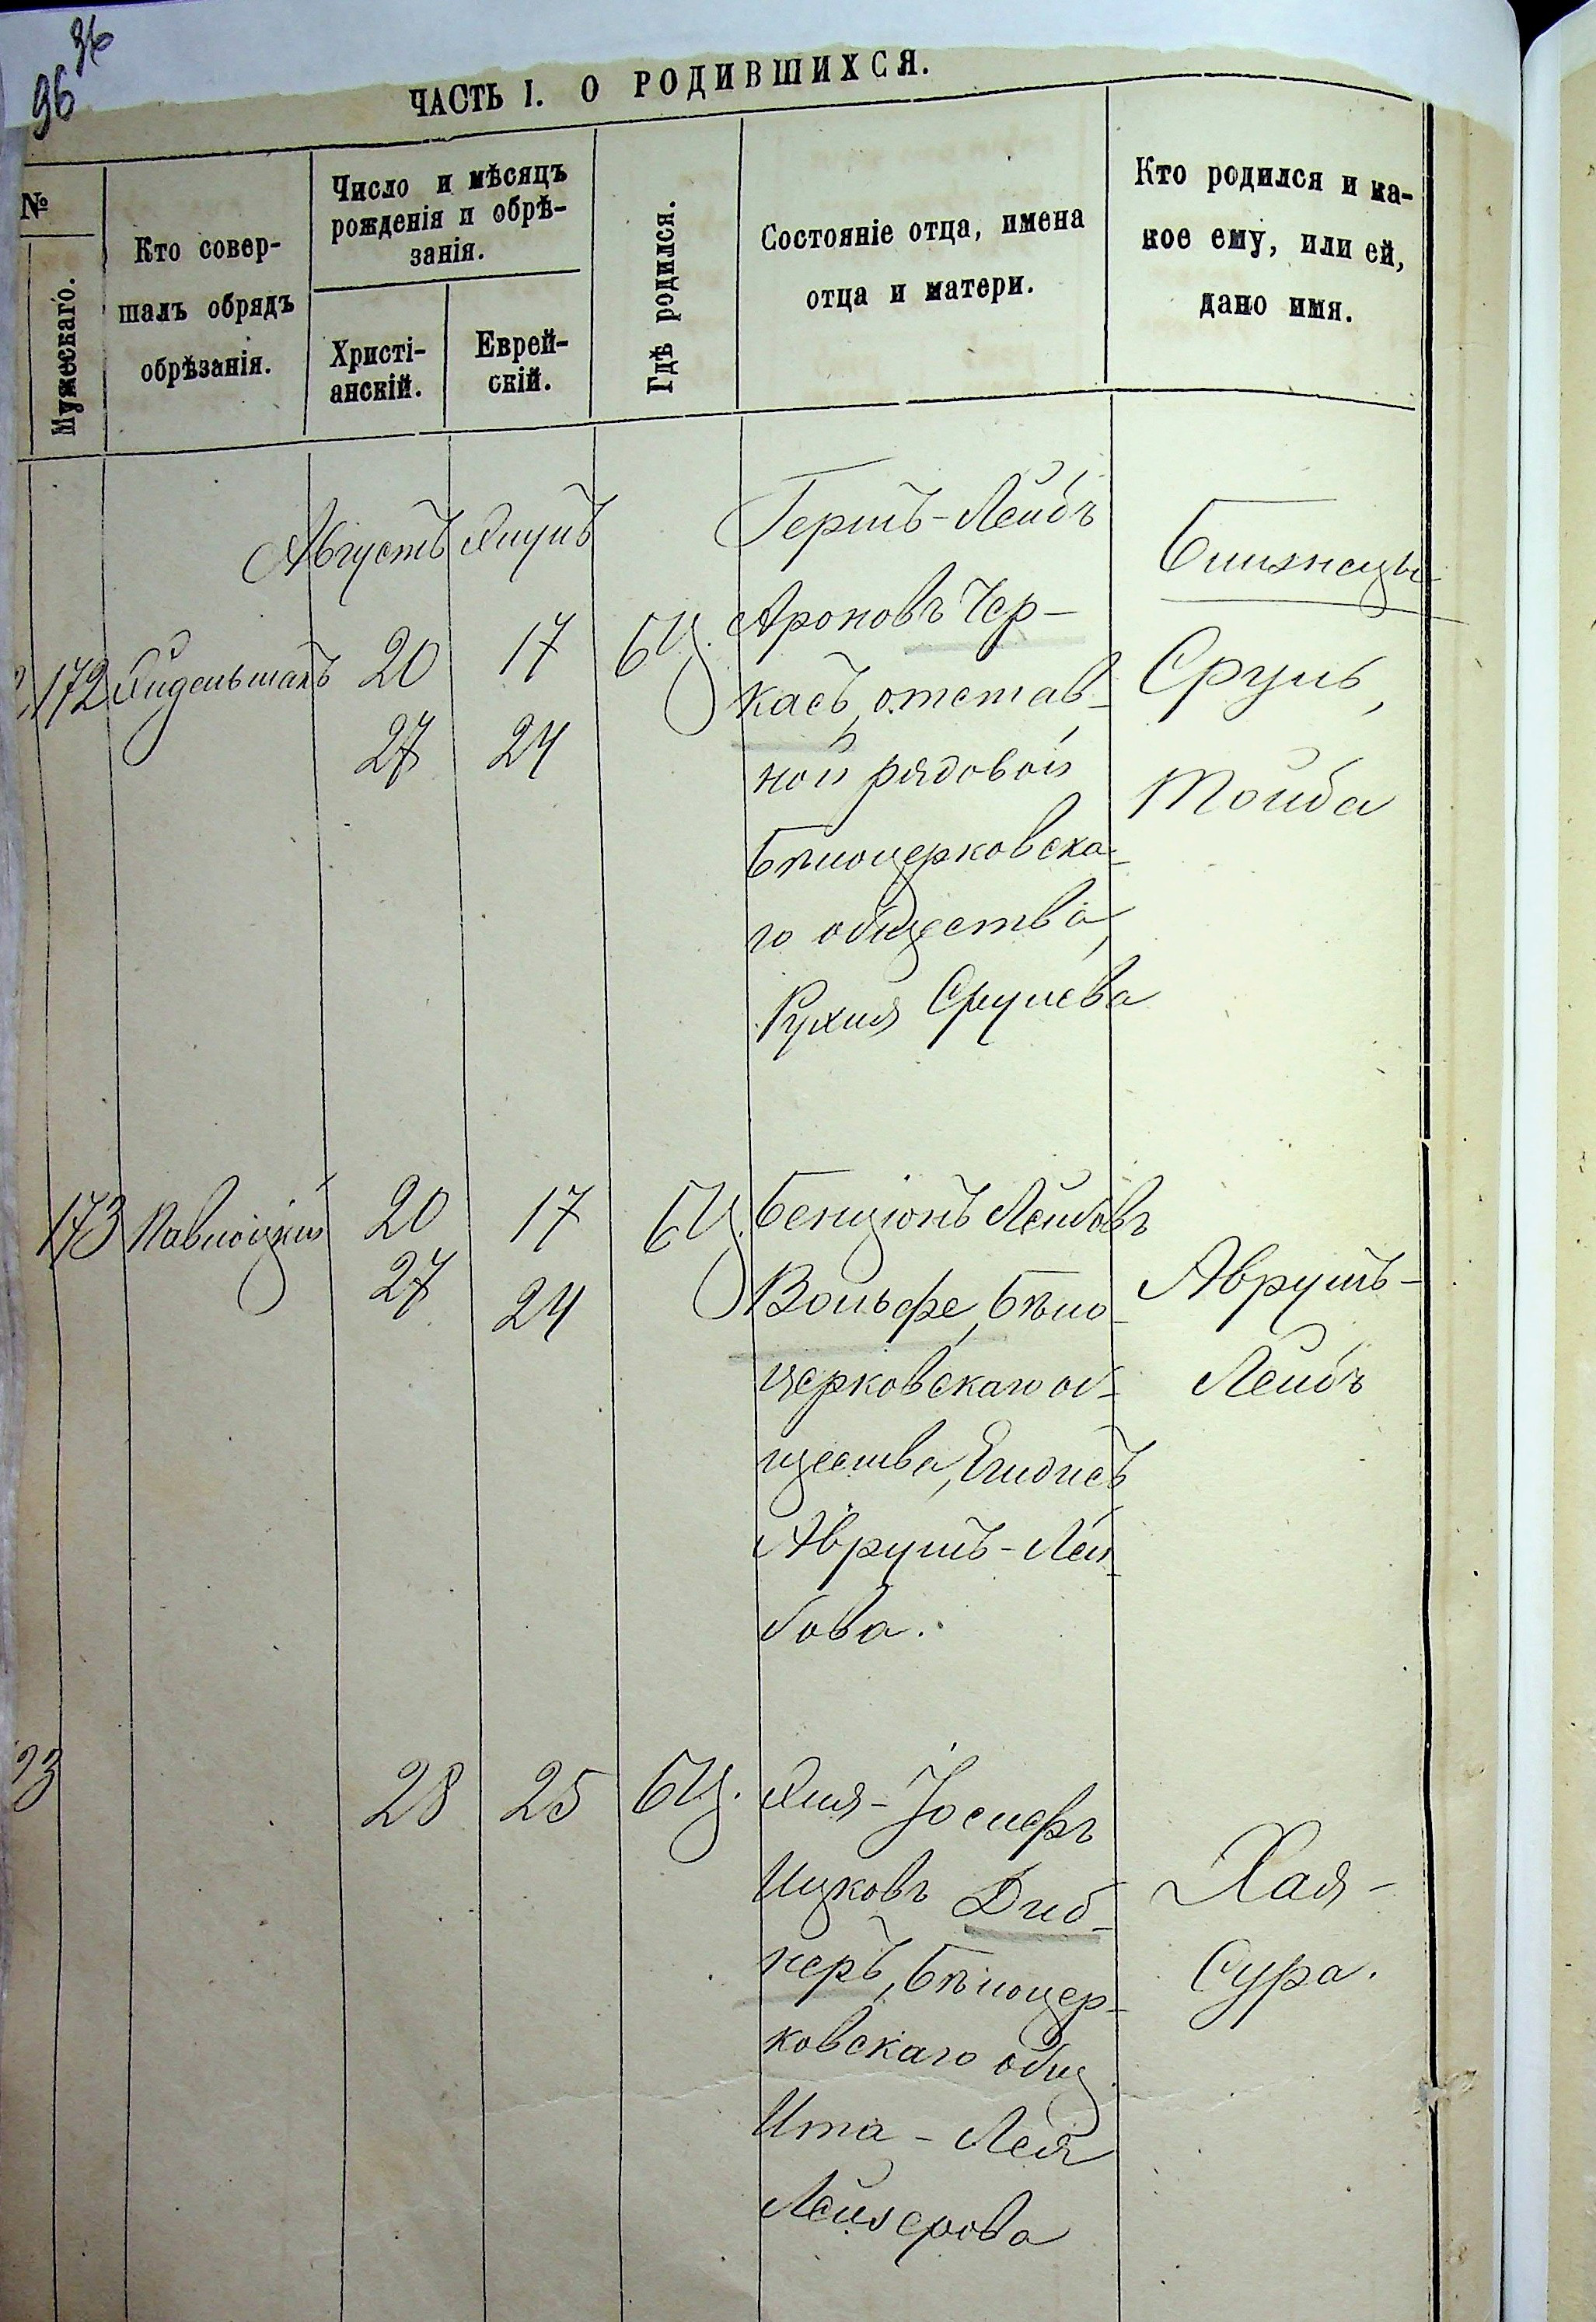 36
96
ЧАСТЬ I. О РОДИВШИХСЯ.
№
Мужескаго.
Кто совер-
шалъ обрядъ
обрѣзанія.
Число и мѣсяцъ
рожденія и обрѣ-
занія.
Христі-
анскій.
Еврей-
скій.
Гдѣ родился.
Состояніе отца, имена
отца и матери.
Кто родился и ка-
кое ему, или ей,
дано имя.
Августъ
172
20
17
БЦ.
27
24
Гершъ-Лейбъ
Ароновъ Чер-
касъ, отстав-
ной рядовой
Бѣлоцерковска-
го общества,
Рухля Срулева
Близнецы
Сруль,
Тойба
173 Паволоцкій
20
17
БЦ.
27
24
Бенціонъ Лейбовъ
Вольфе, Бѣло-
церковскаго об-
щества,
Аврумъ-Лей-
бова.
Аврумъ-
Лейбъ
23
28
25
БЦ.
Эля-Іосифъ
Ицковъ Диб-
неръ, Бѣлоцер-
ковскаго общ.
Ита-Лея
Лейзерова
Хая-
Сура.